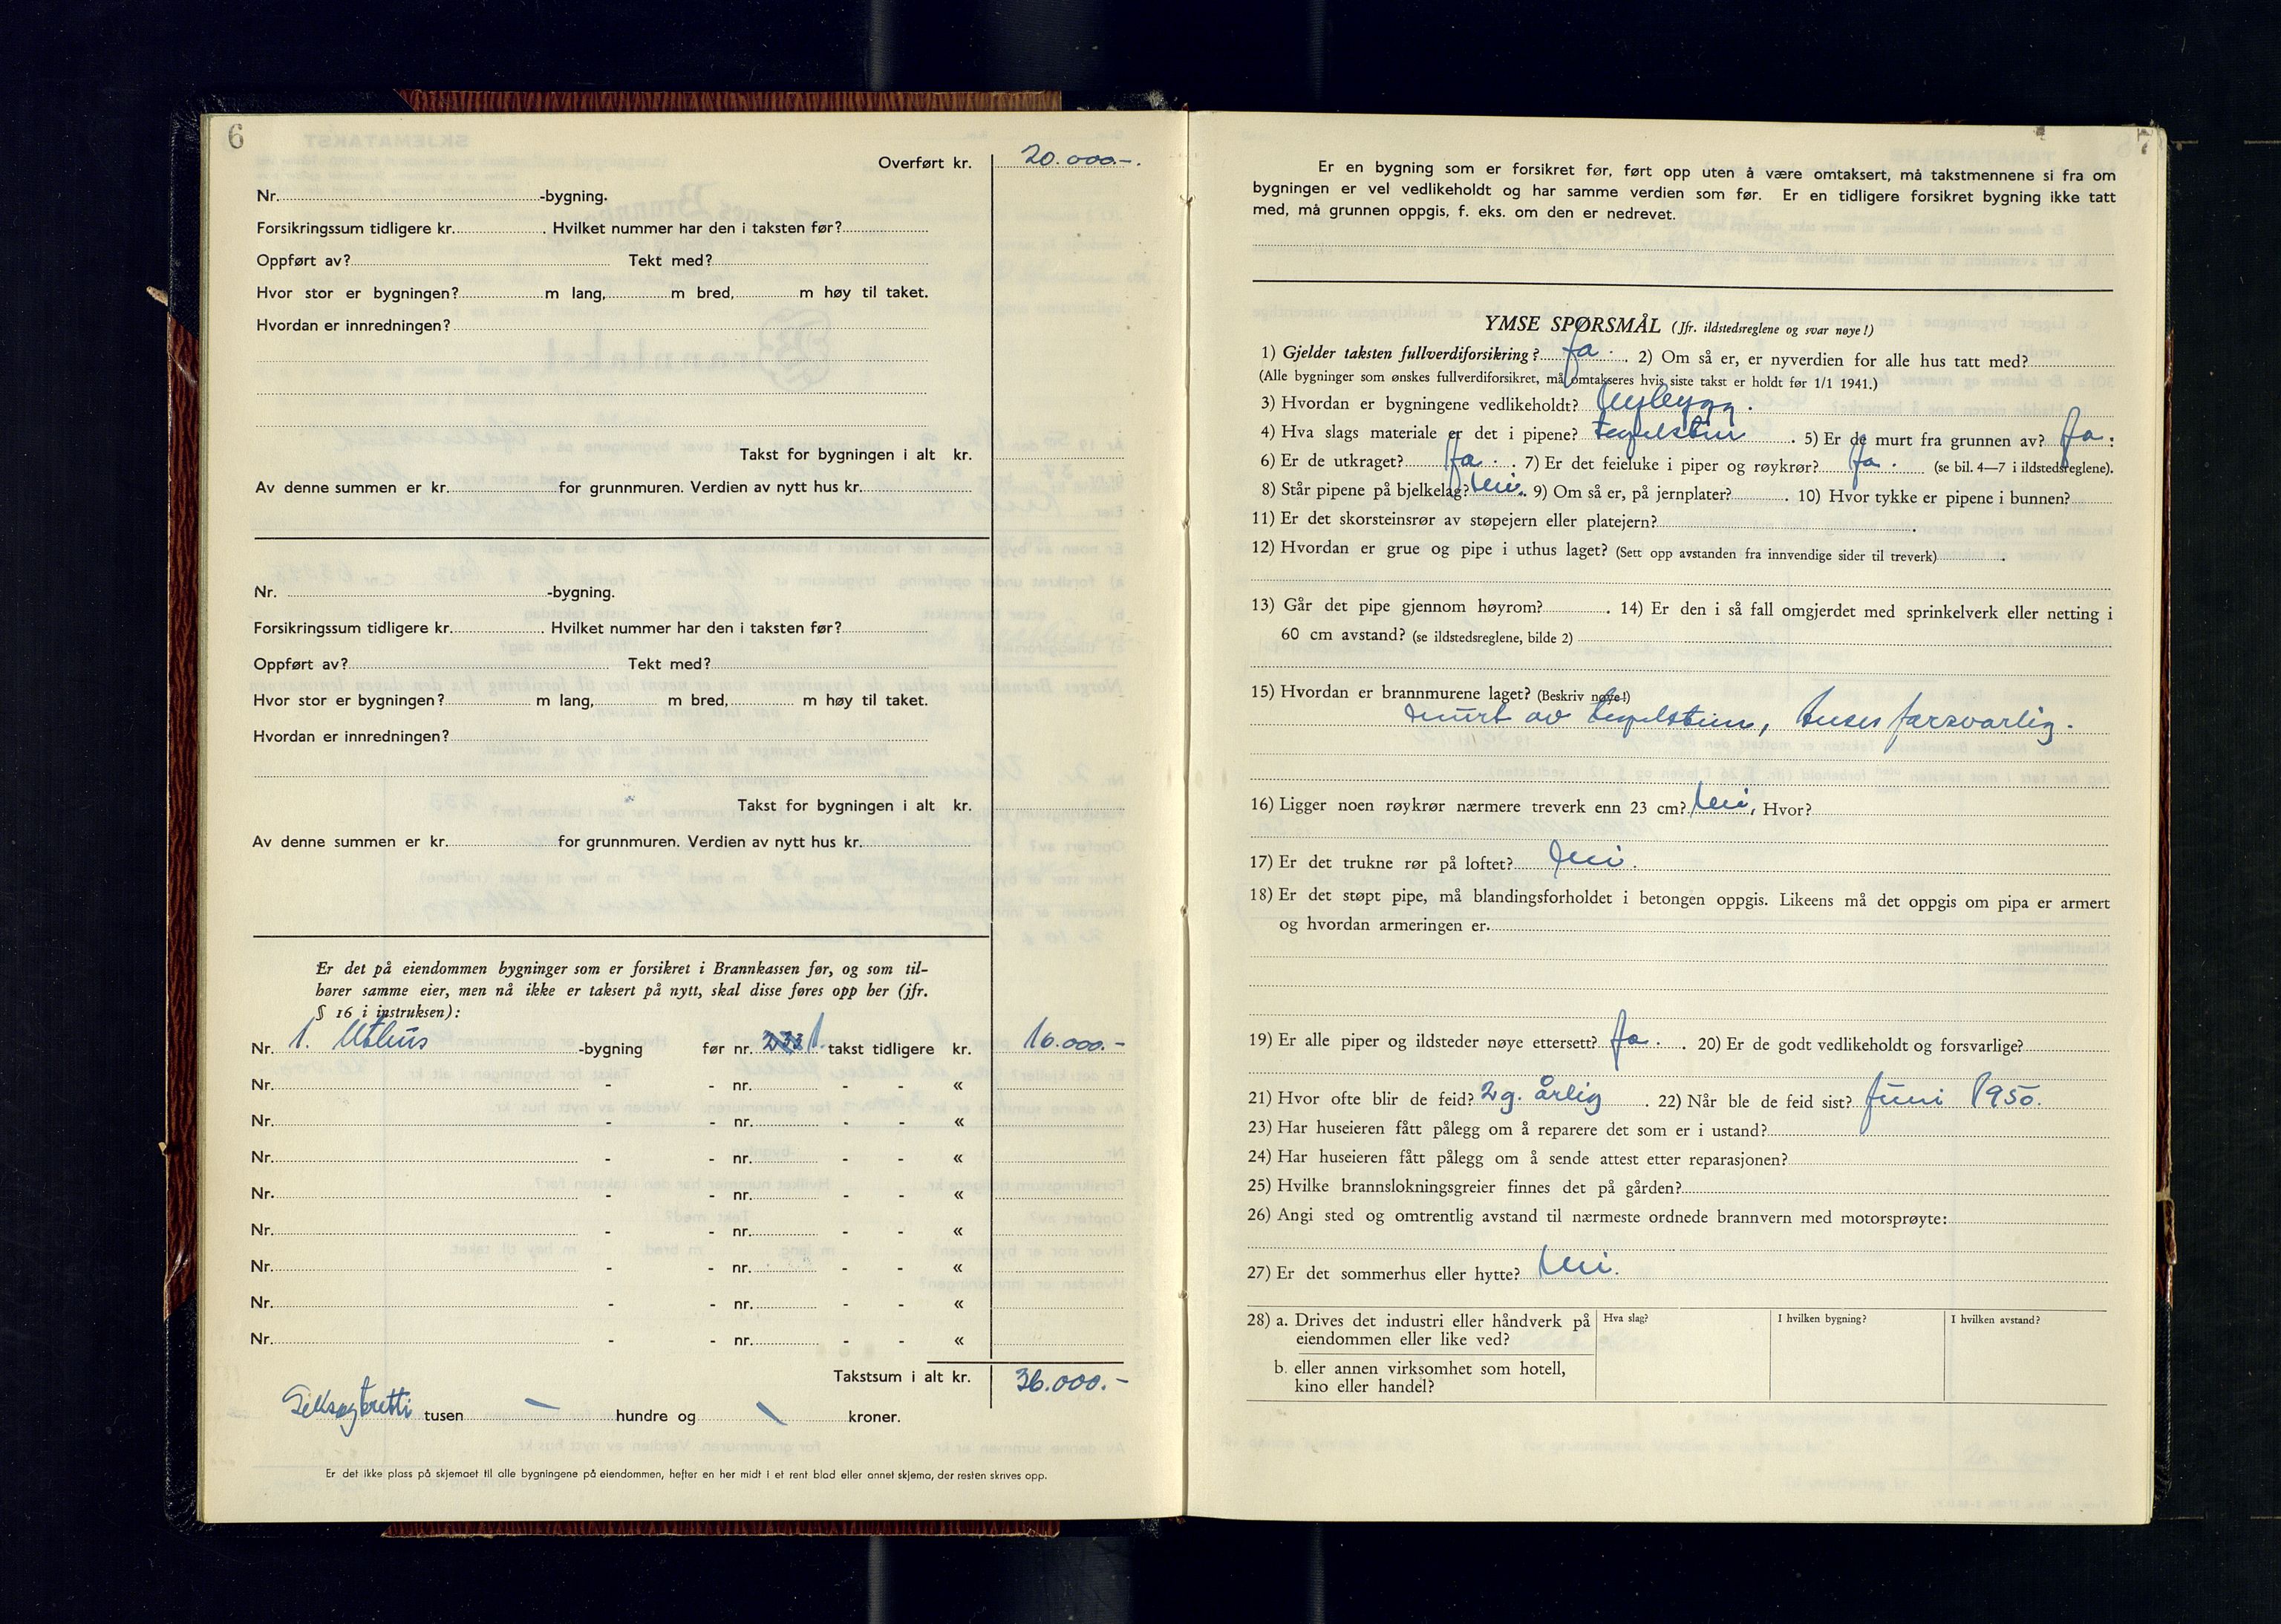 6
Overført kr. 20.000.-.
Nr. -bygning.
Forsikringssum tidligere kr. . Hvilket nummer har den i taksten før?
Oppført av? Tekt med?
Hvor stor er bygningen? m lang, m bred, m høy til taket.
Hvordan er innredningen?
Takst for bygningen i alt kr.
Av denne summen er kr. for grunnmuren. Verdien av nytt hus kr.
Nr. -bygning.
Forsikringssum tidligere kr. . Hvilket nummer har den i taksten før?
Oppført av? Tekt med?
Hvor stor er bygningen? m lang, m bred, m høy til taket.
Hvordan er innredningen?
Takst for bygningen i alt kr.
Av denne summen er kr. for grunnmuren. Verdien av nytt hus kr.
Er det på eiendommen bygninger som er forsikret i Brannkassen før, og som til-
hører samme eier, men nå ikke er taksert på nytt, skal disse føres opp her (jfr.
§ 16 i instruksen):
Nr. 1. Uthus -bygning før nr. 233 1. takst tidligere kr. 16.000.-
Nr. - - nr. - - «
Nr. - - nr. - - «
Nr. - - nr. - - «
Nr. - - nr. - - «
Nr. - - nr. - - «
Nr. - - nr. - - «
Nr. - - nr. - - «
Nr. - - nr. - - «
Takstsum i alt kr. 36.000.-
Seksogtretti tusen - hundre og - kroner.
Er det ikke plass på skjemaet til alle bygningene på eiendommen, hefter en her midt i et rent blad eller annet skjema, der resten skrives opp.
7
Er en bygning som er forsikret før, ført opp uten å være omtaksert, må takstmennene si fra om
bygningen er vel vedlikeholdt og har samme verdien som før. Er en tidligere forsikret bygning ikke tatt
med, må grunnen oppgis, f. eks. om den er nedrevet.
YMSE SPØRSMÅL (Jfr. ildstedsreglene og svar nøye!)
1) Gjelder taksten fullverdiforsikring? Ja. . 2) Om så er, er nyverdien for alle hus tatt med?
(Alle bygninger som ønskes fullverdiforsikret, må omtakseres hvis siste takst er holdt før 1/1 1941.)
3) Hvordan er bygningene vedlikeholdt? Nybygg.
4) Hva slags materiale er det i pipene? Teglstein . 5) Er de murt fra grunnen av? Ja.
6) Er de utkraget? Ja. . 7) Er det feieluke i piper og røykrør? Ja. (se bil. 4—7 i ildstedsreglene).
8) Står pipene på bjelkelag? Nei. 9) Om så er, på jernplater? . 10) Hvor tykke er pipene i bunnen?
11) Er det skorsteinsrør av støpejern eller platejern? .
12) Hvordan er grue og pipe i uthus laget? (Sett opp avstanden fra innvendige sider til treverk) .
13) Går det pipe gjennom høyrom? . 14) Er den i så fall omgjerdet med sprinkelverk eller netting i
60 cm avstand? (se ildstedsreglene, bilde 2)
15) Hvordan er brannmurene laget? (Beskriv nøye!)
Murt av teglstein, anses forsvarlig.
16) Ligger noen røykrør nærmere treverk enn 23 cm? Nei, Hvor?
17) Er det trukne rør på loftet? Nei.
18) Er det støpt pipe, må blandingsforholdet i betongen oppgis. Likeens må det oppgis om pipa er armert
og hvordan armeringen er.
19) Er alle piper og ildsteder nøye ettersett? Ja. . 20) Er de godt vedlikeholdt og forsvarlige?
21) Hvor ofte blir de feid? 2 g. årlig . 22) Når ble de feid sist? Juni 1950.
23) Har huseieren fått pålegg om å reparere det som er i ustand?
24) Har huseieren fått pålegg om å sende attest etter reparasjonen?
25) Hvilke brannslokningsgreier finnes det på gården?
26) Angi sted og omtrentlig avstand til nærmeste ordnede brannvern med motorsprøyte:
27) Er det sommerhus eller hytte? Nei.
28) a. Drives det industri eller håndverk på Hva slag? I hvilken bygning? I hvilken avstand?
eiendommen eller like ved?
b. eller annen virksomhet som hotell,
kino eller handel?